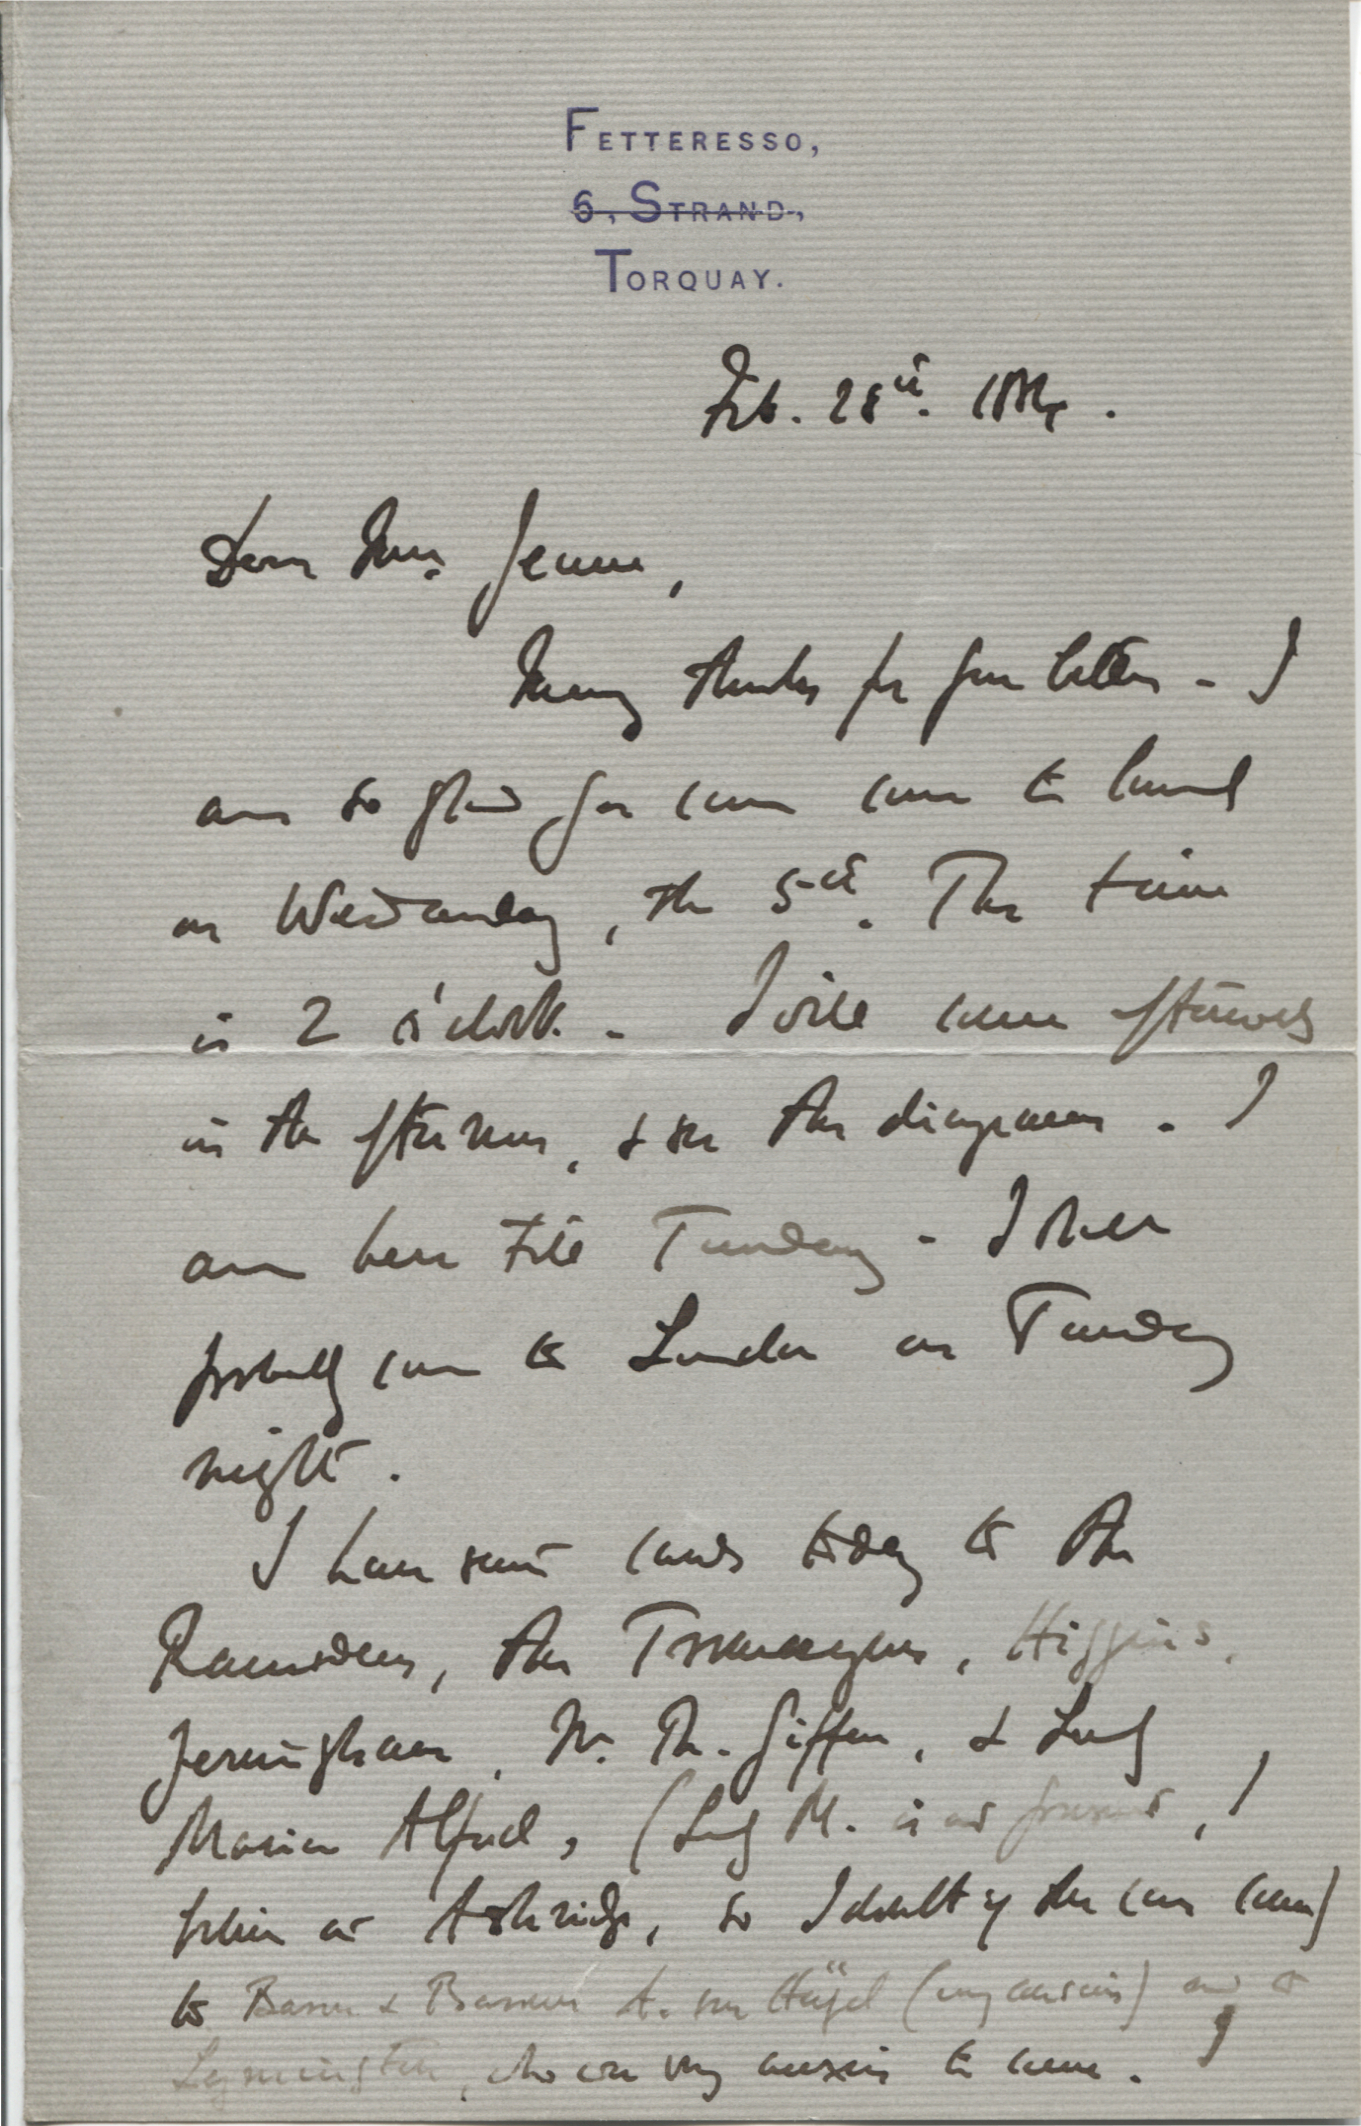 FETTERESSO,
6, STRAND,
TORQUAY.
Feb. 28th. 1884.
Dear Mrs. Jeune,
Many thanks for your letter - I
am so glad you can come to lunch
on Wednesday, the 5th. The time
is 2 o'clock - I will come afterwards
in the afternoon, & see the diagrams. I
am here till Tuesday - I shall
probably come to London on Tuesday
night.
I have sent cards today to the
Ramsdens, the Higgins,
Jerningham, Giffen, & Lady
Marian Alford, (Lady M. is at present, I
believe at Ashridge, so I doubt if she can come)
to Baron & Baroness A. von Hügel (my cousin) and to
Lymington, who are very anxious to come.